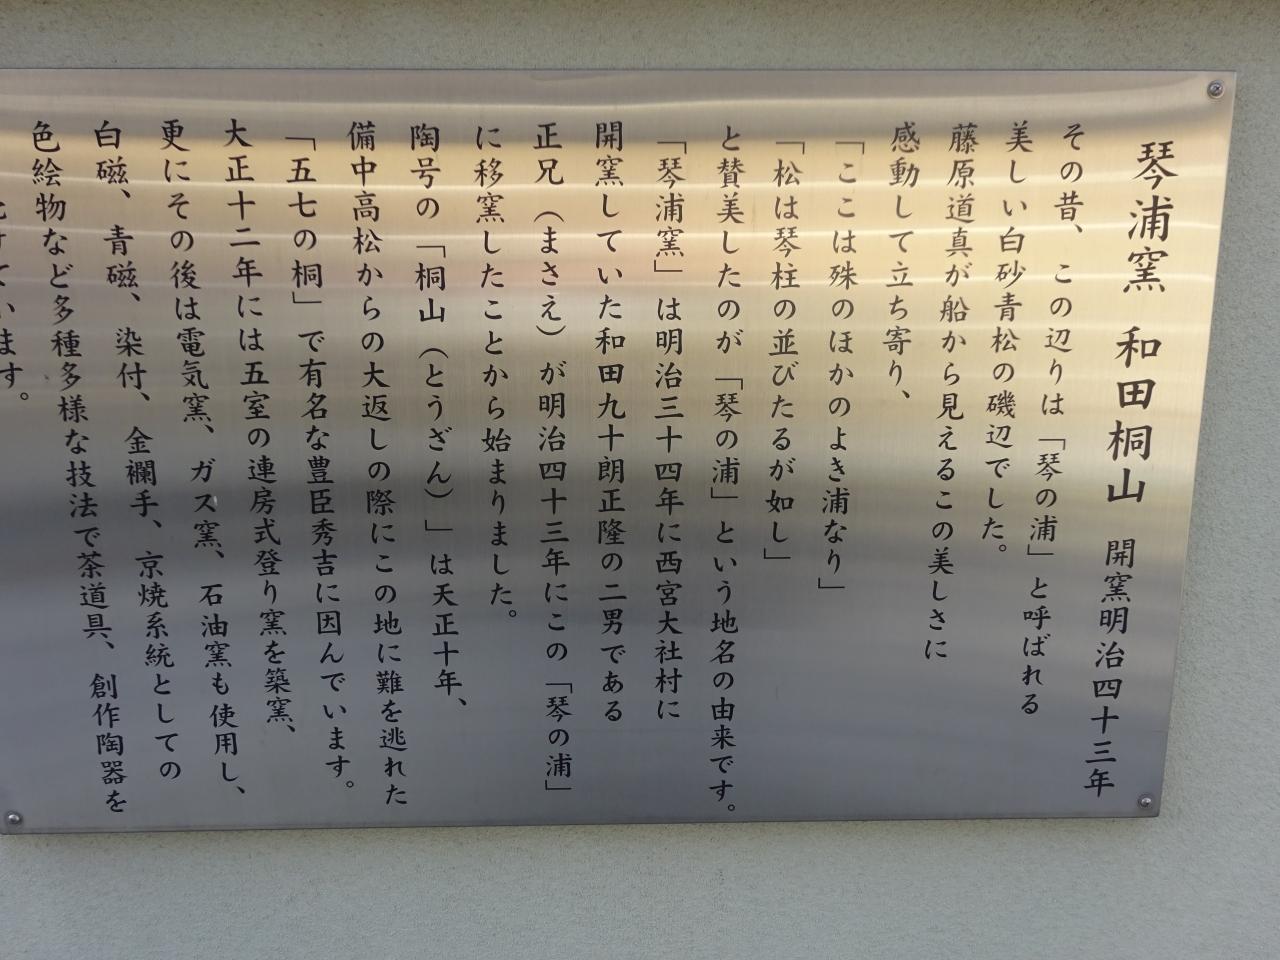 琴浦窯 和田桐山 開窯明治四十三年
その昔、この辺りは「琴の浦」と呼ばれる
美しい白砂青松の磯辺でした。
藤原道真が船から見えるこの美しさに
感動して立ち寄り、
「ここは殊のほかのよき浦なり」
「松は琴柱の並びたるが如し」
と賛美したのが「琴の浦」という地名の由来です。
「琴浦窯」は明治三十四年に西宮大社村に
開窯していた和田九十朗正隆の二男である
正兄（まさえ）が明治四十三年にこの「琴の浦」
に移窯したことから始まりました。
陶号の「桐山（とうざん）」は天正十年、
備中高松からの大返しの際にこの地に難を逃れた
「五七の桐」で有名な豊臣秀吉に因んでいます。
大正十二年には五室の連房式登り窯を築窯、
更にその後は電気窯、ガス窯、石油窯も使用し、
白磁、青磁、染付、金襴手、京焼系統としての
色絵物など多種多様な技法で茶道具、創作陶器を
います。